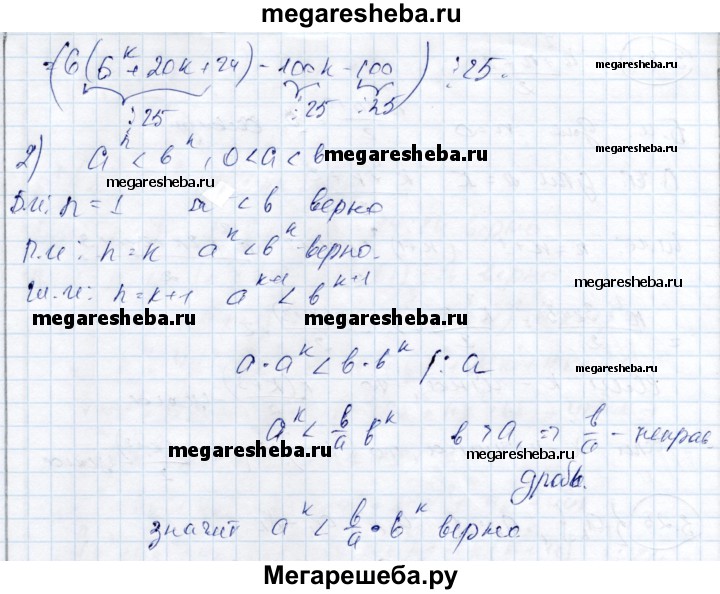 megaresheba.ru
=(6(6^k+20k+24) - 100k - 100) ⋮25.
megaresheba.ru
⋮25 ⋮25 ⋮25
2) a^n < b^n, 0<a<b
megaresheba.ru
megaresheba.ru
Б.и: n=1 a < b верно
П.и: n=k a^k<b^k верно.
Ш.и: n=k+1 a^k+1 < b^k+1
megaresheba.ru
megaresheba.ru megaresheba.ru
a·a^k < b·b^k /: a
megaresheba.ru
a^k < b/a b^k b>a, => b/a - неправ
megaresheba.ru
megaresheba.ru
дробь.
значит a^k < b/a · b^k верно
Мегарешеба.ру